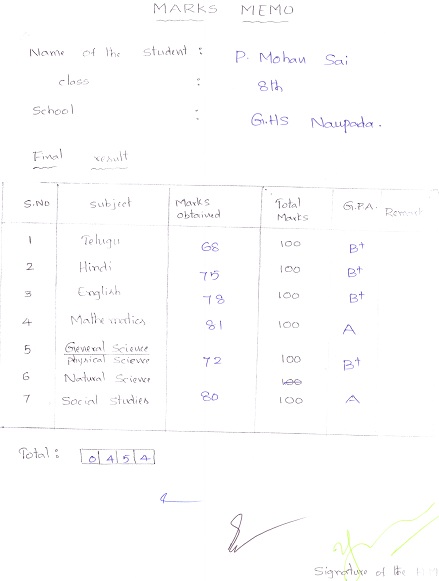 MARKS MEMO
Name of the Student : P. Mohan Sai
class : 8th
School : G.HS Naupada.
Final result
S.NO Subject Marks obtained Total Marks G.P.A.
1 Telugu 68 100 B+
2 Hindi 75 100 B+
3 English 78 100 B+
4 Mathematics 81 100 A
5 General Science
Physical Science 72 100 B+
6 Natural Science 100
7 Social Studies 80 100 A
Total : 0454
Signature of the